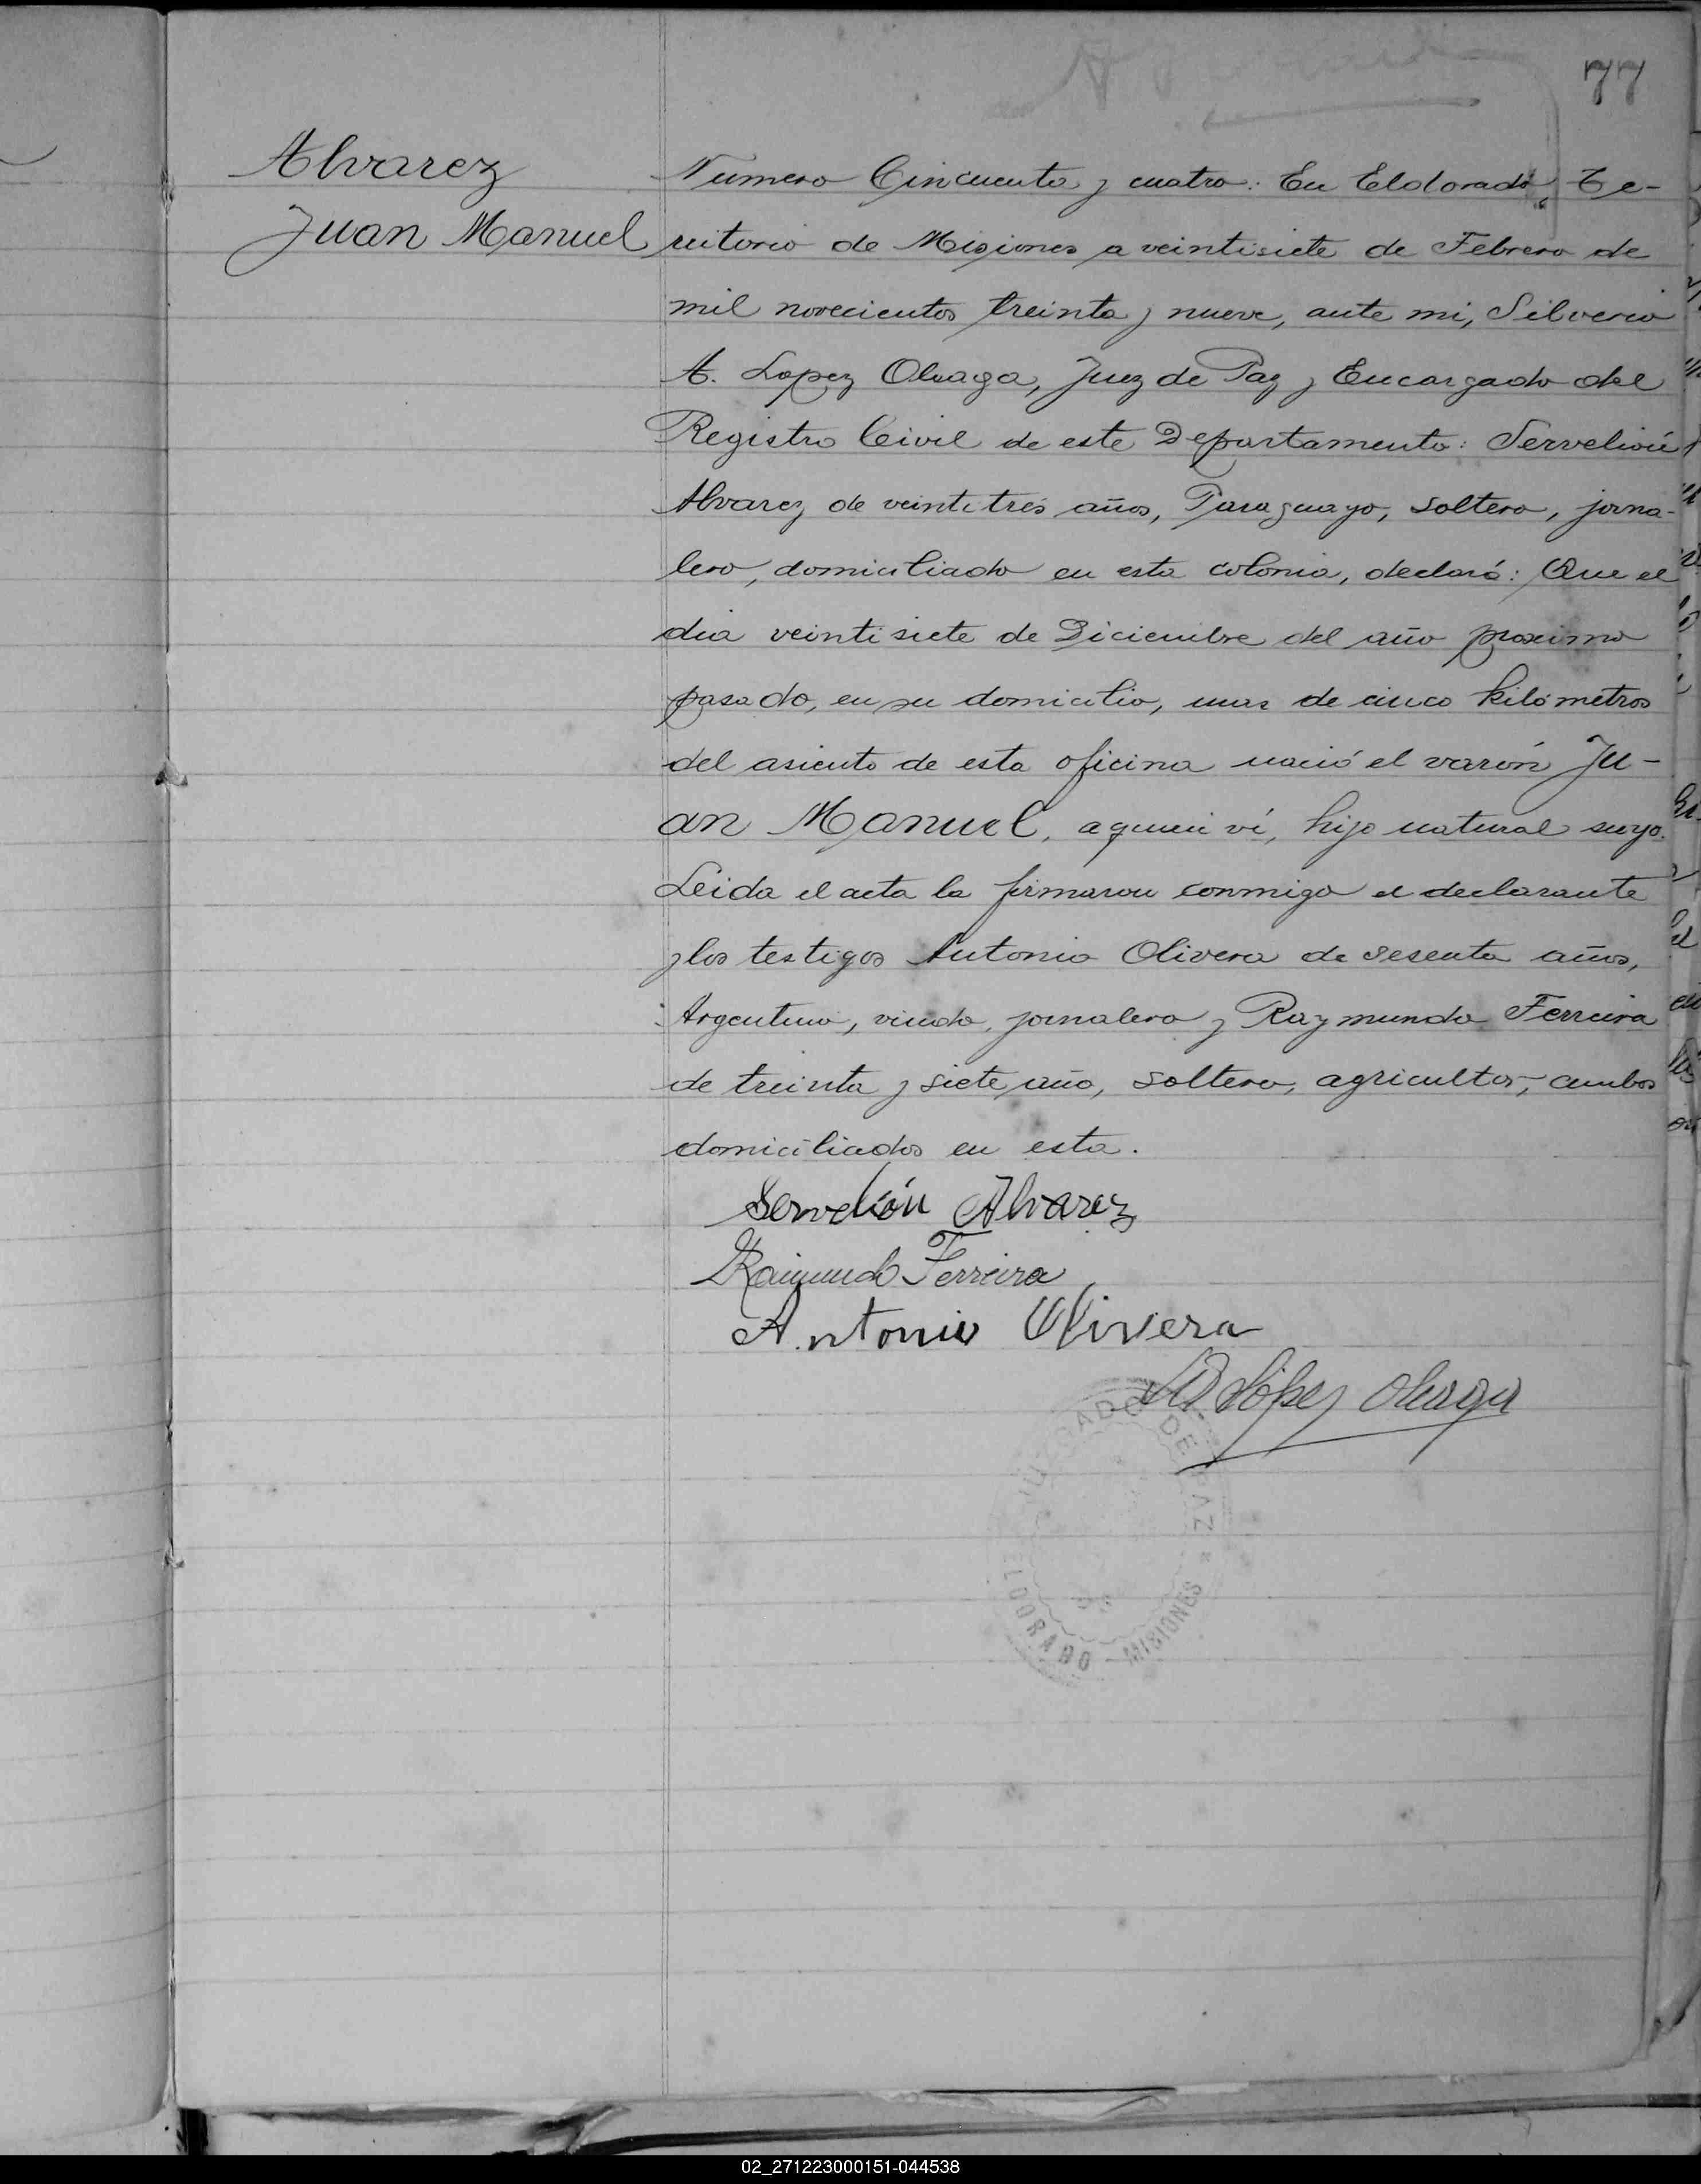 77
Alvarez
Juan Manuel
Numero Cincuenta y cuatro: En Eldorado, Te-
rritorio de Misiones a veintisiete de Febrero de
mil novecientos treinta y nueve, ante mi, Silverio
A. Lopez Oleaga, Juez de Paz y Encargado del
Registro Civil de este Departamento: Servelión
Alvarez de veintitrés años, Paraguayo, soltero, jorna-
lero, domiciliado en esta colonia, declaró: Que el
dia veintisiete de Diciembre del año proximo
pasado, en su domicilio, mas de cinco kilómetros
del asiento de esta oficina nació el varón Ju-
an Manuel, a quien ví, hijo natural suyo.
Leida el acta la firmaron conmigo el declarante
y los testigos Antonio Olivera de sesenta años,
Argentino, viudo, jornalero y Raymundo Ferreira
de treinta y siete año, soltero, agricultor, ambos
domiciliados en esta.
Servelión Alvarez
Raimundo Ferreira
Antonio Olivera
López Oleaga
JUZGADO DE PAZ
ELDORADO - MISIONES
02_271223000151-044538